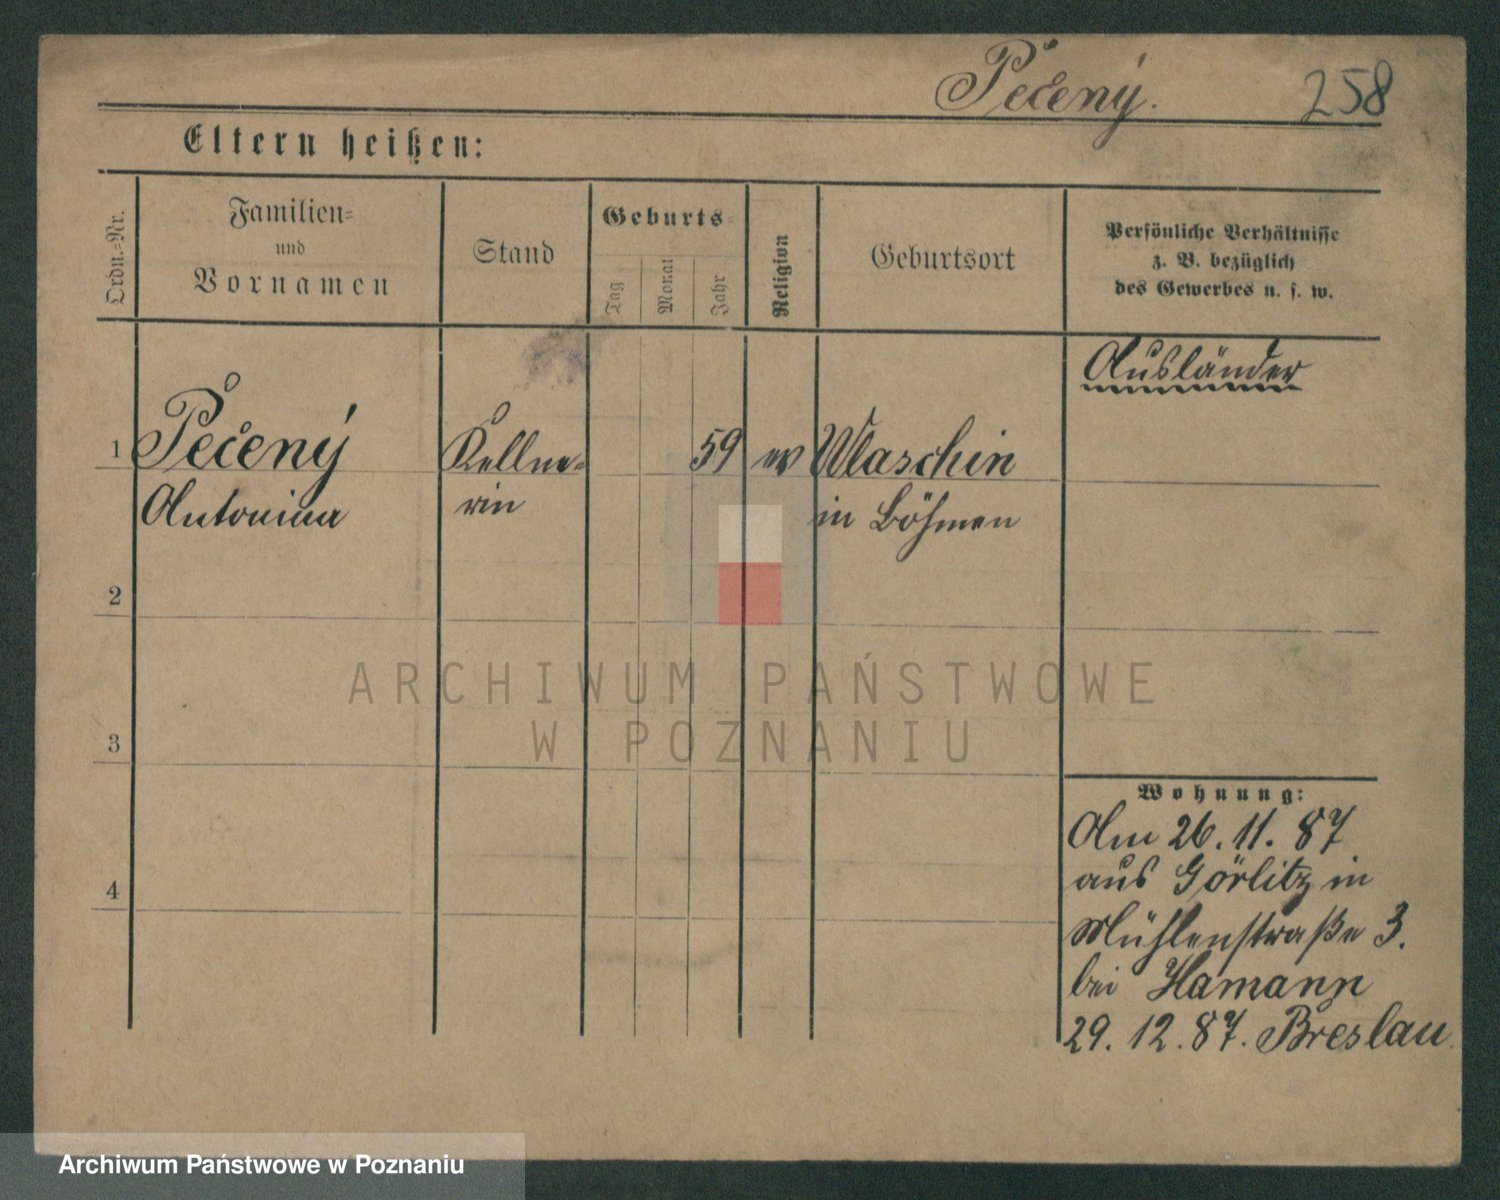 Pečený. 258
Eltern heißen:
Ordn.=Nr.
Familien=
und
Vornamen
Stand
Geburts=
Tag
Monat
Jahr
Religion
Geburtsort
Persönliche Verhältnisse
z. B. bezüglich
des Gewerbes u. s. w.
Ausländer
1 Pečený Kellne= 59 ev Wlaschin
Antonina rin in Böhmen
2
3
4
ARCHIWUM PAŃSTWOWE
W POZNANIU
Wohnung:
Am 26. 11. 87
aus Görlitz in
Mühlenstraße 3.
bei Hamann
29. 12. 87. Breslau
Archiwum Państwowe w Poznaniu